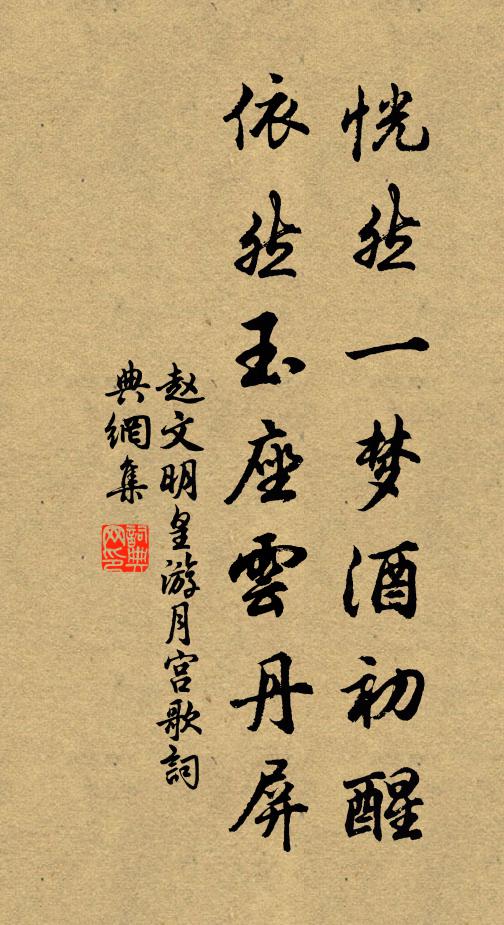 恍然一梦酒初醒
依然玉座雲丹屏
赵文明皇游月宫歌詞
典網集
詞典
网印